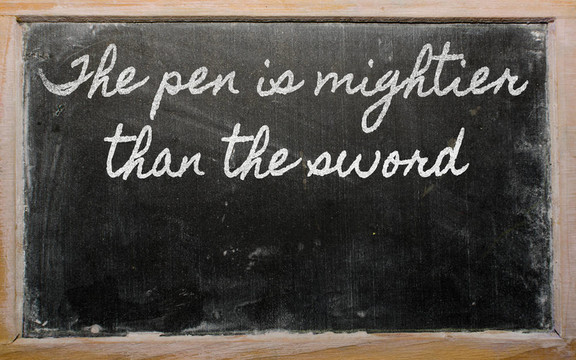 The pen is mightier
than the sword